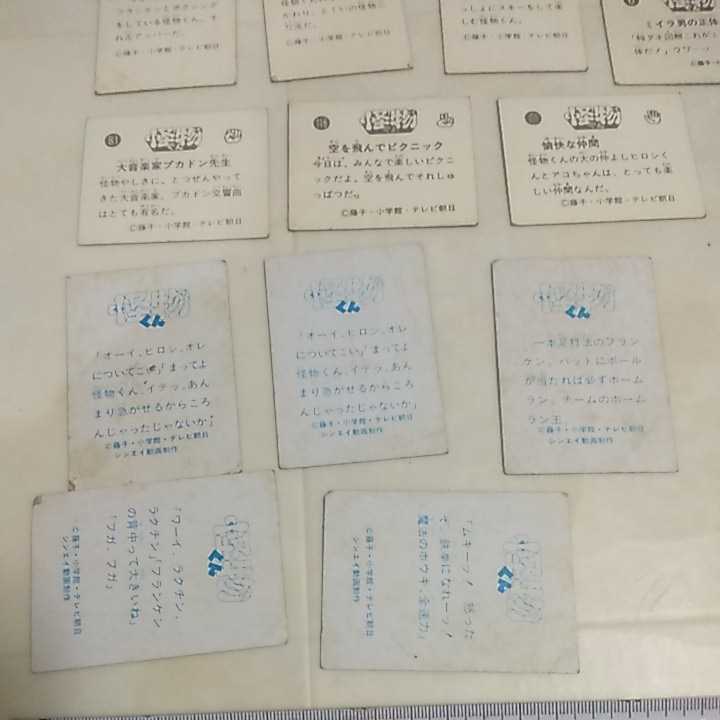 をしている怪物くん。そ
れるアッパーだ。
©藤子・小学館・テレビ朝日
©藤子・小学館・テレビ朝日
っしょにスキーをして楽
しむ怪物くん。
©藤子・小学館・テレビ朝日
ミイラ男の正体
体だ！ワワーッ
81
怪物
大音楽家ブカドン先生
怪物やしきに、とつぜんやって
きた大音楽家。ブカドン交響曲
はとても有名だ。
©藤子・小学館・テレビ朝日
怪物
空を飛んでピクニック
今日は、みんなで楽しいピクニ
ックだよ。空を飛んでそれしゅ
っぱつだ。
©藤子・小学館・テレビ朝日
怪物
愉快な仲間
怪物くんの大の仲よしヒロシく
んとアコちゃんは、とっても楽
しい仲間なんだ。
©藤子・小学館・テレビ朝日
怪物くん
「オーイ、ヒロシ、オレ
についてこい」「まってよ
怪物くん、イテッ、あん
まり急がせるからころ
んじゃったじゃないか」
©藤子・小学館・テレビ朝日
シンエイ動画制作
怪物くん
「オーイ、ヒロシ、オレ
についてこい」「まってよ
怪物くん、イテッ、あん
まり急がせるからころ
んじゃったじゃないか」
©藤子・小学館・テレビ朝日
シンエイ動画制作
怪物くん
一本足打法のフラン
ケン、バットにボール
が当たれば必ずホーム
ラン、チームのホーム
ラン王。
©藤子・小学館・テレビ朝日
シンエイ動画制作
怪物くん
「ワーイ、ラクチン、
ラクチン」「フランケン
の背中って大きいね」
「フガ、フガ」
©藤子・小学館・テレビ朝日
シンエイ動画制作
怪物くん
「ムキーッ！怒った
ぞ、鉄拳になれーッ！
魔法のホウキ、全速力」
©藤子・小学館・テレビ朝日
シンエイ動画制作